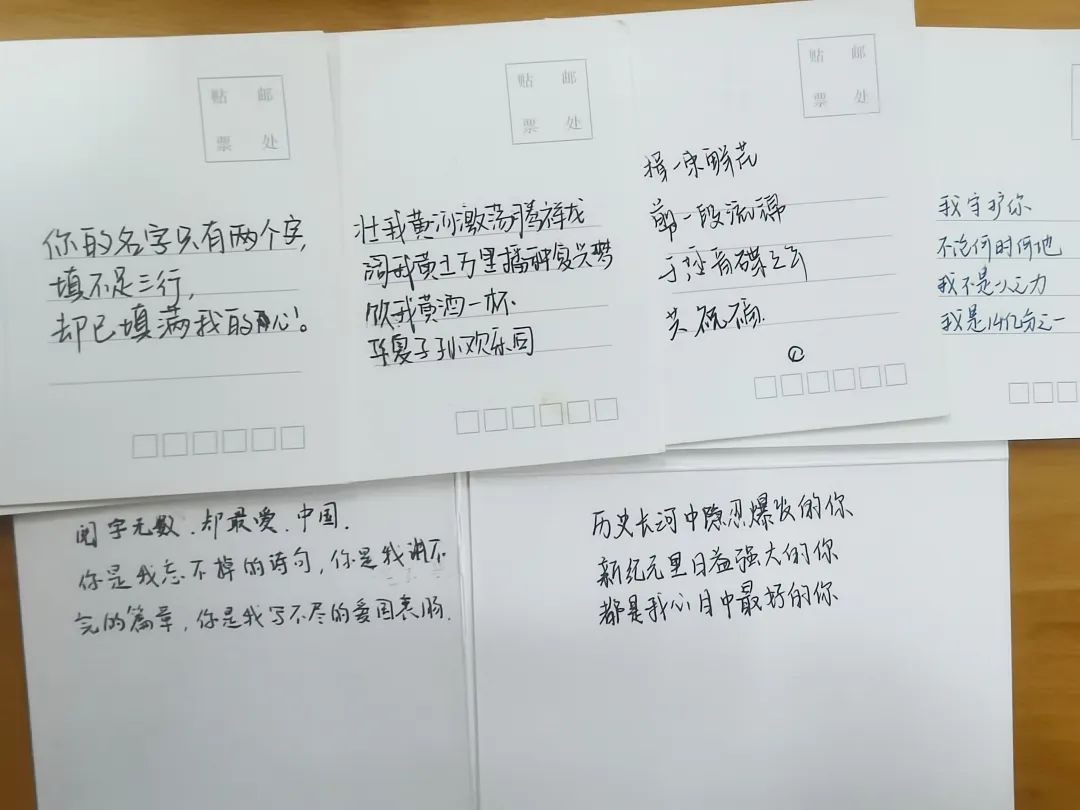 贴 邮
票 处
你的名字只有两个字,
填不足三行,
却已填满我的心。
贴 邮
票 处
壮我黄河激荡腾祥龙
阔我黄土万里播种复兴梦
饮我黄酒一杯
华夏子孙欢乐同
贴 邮
票 处
捐一束鲜花
剪一段流锦
共祝福
①
我守护你
不论何时何地
我不是一人之力
我是14亿分之一
阅字无数,却最爱,中国.
你是我忘不掉的诗句,你是我谱不
完的篇章,你是我写不尽的爱国衷肠.
历史长河中隐忍爆发的你
新纪元里日益强大的你
都是我心目中最好的你